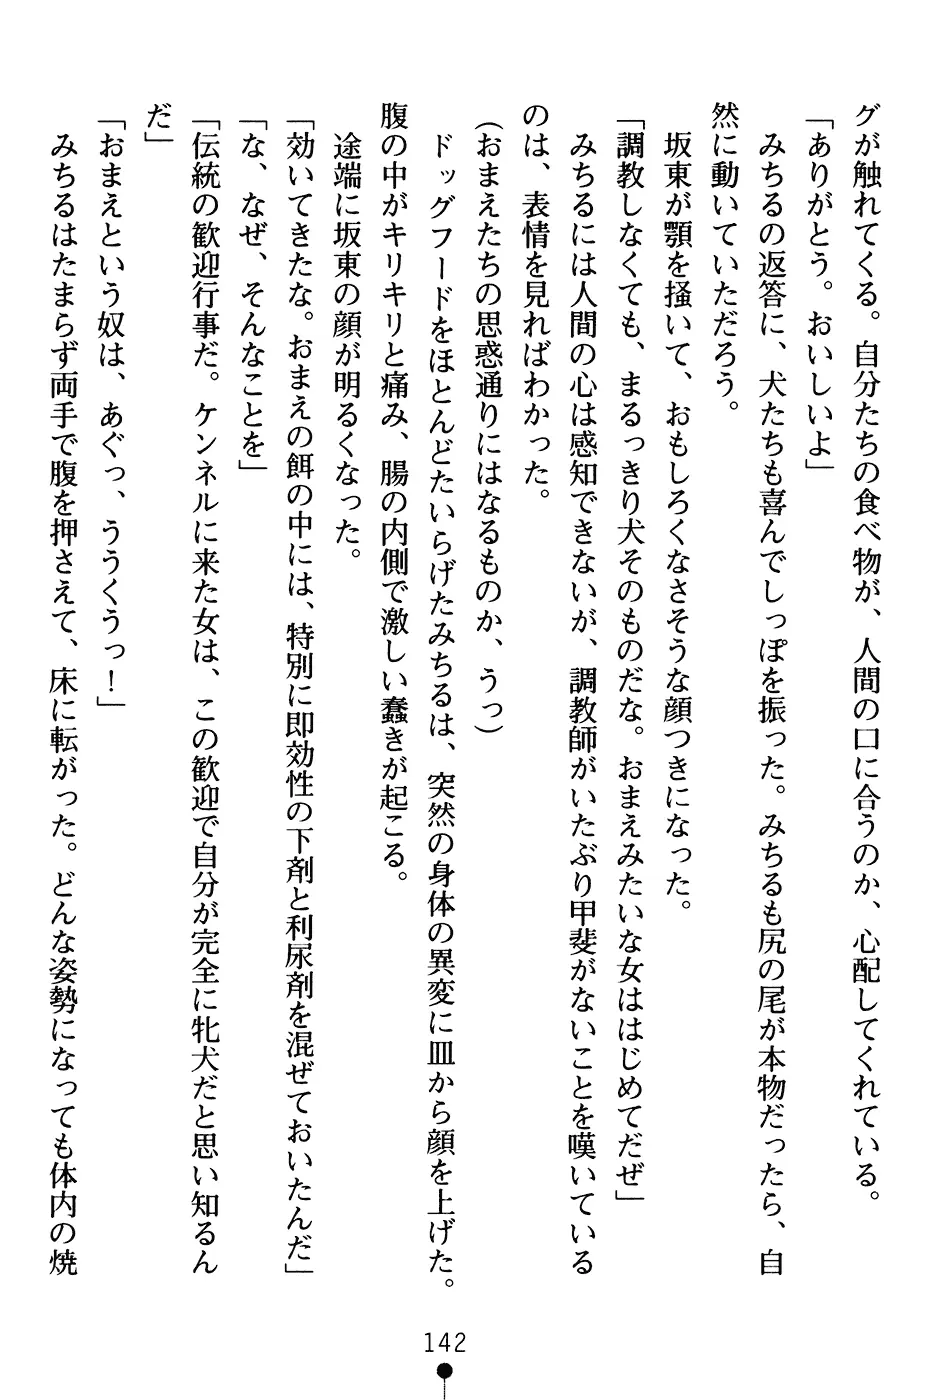 グが触れてくる。自分たちの食べ物が、人間の口に合うのか、心配してくれている。
「ありがとう。おいしいよ」
みちるの返答に、犬たちも喜んでしっぽを振った。みちるも尻の尾が本物だったら、自
然に動いていただろう。
坂東が顎を掻いて、おもしろくなさそうな顔つきになった。
「調教しなくても、まるっきり犬そのものだな。おまえみたいな女ははじめてだぜ」
みちるには人間の心は感知できないが、調教師がいたぶり甲斐がないことを嘆いている
のは、表情を見ればわかった。
(おまえたちの思惑通りにはなるものか、うっ)
ドッグフードをほとんどたいらげたみちるは、突然の身体の異変に皿から顔を上げた。
腹の中がキリキリと痛み、腸の内側で激しい蠢きが起こる。
途端に坂東の顔が明るくなった。
「効いてきたな。おまえの餌の中には、特別に即効性の下剤と利尿剤を混ぜておいたんだ」
「な、なぜ、そんなことを」
「伝統の歓迎行事だ。ケンネルに来た女は、この歓迎で自分が完全に牝犬だと思い知るん
だ」
「おまえという奴は、あぐっ、ううくうっ！」
みちるはたまらず両手で腹を押さえて、床に転がった。どんな姿勢になっても体内の焼
142